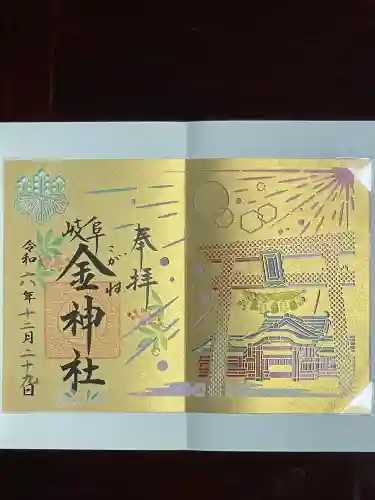 奉拝
岐阜
金神社
こがね
令和六年十二月二十九日